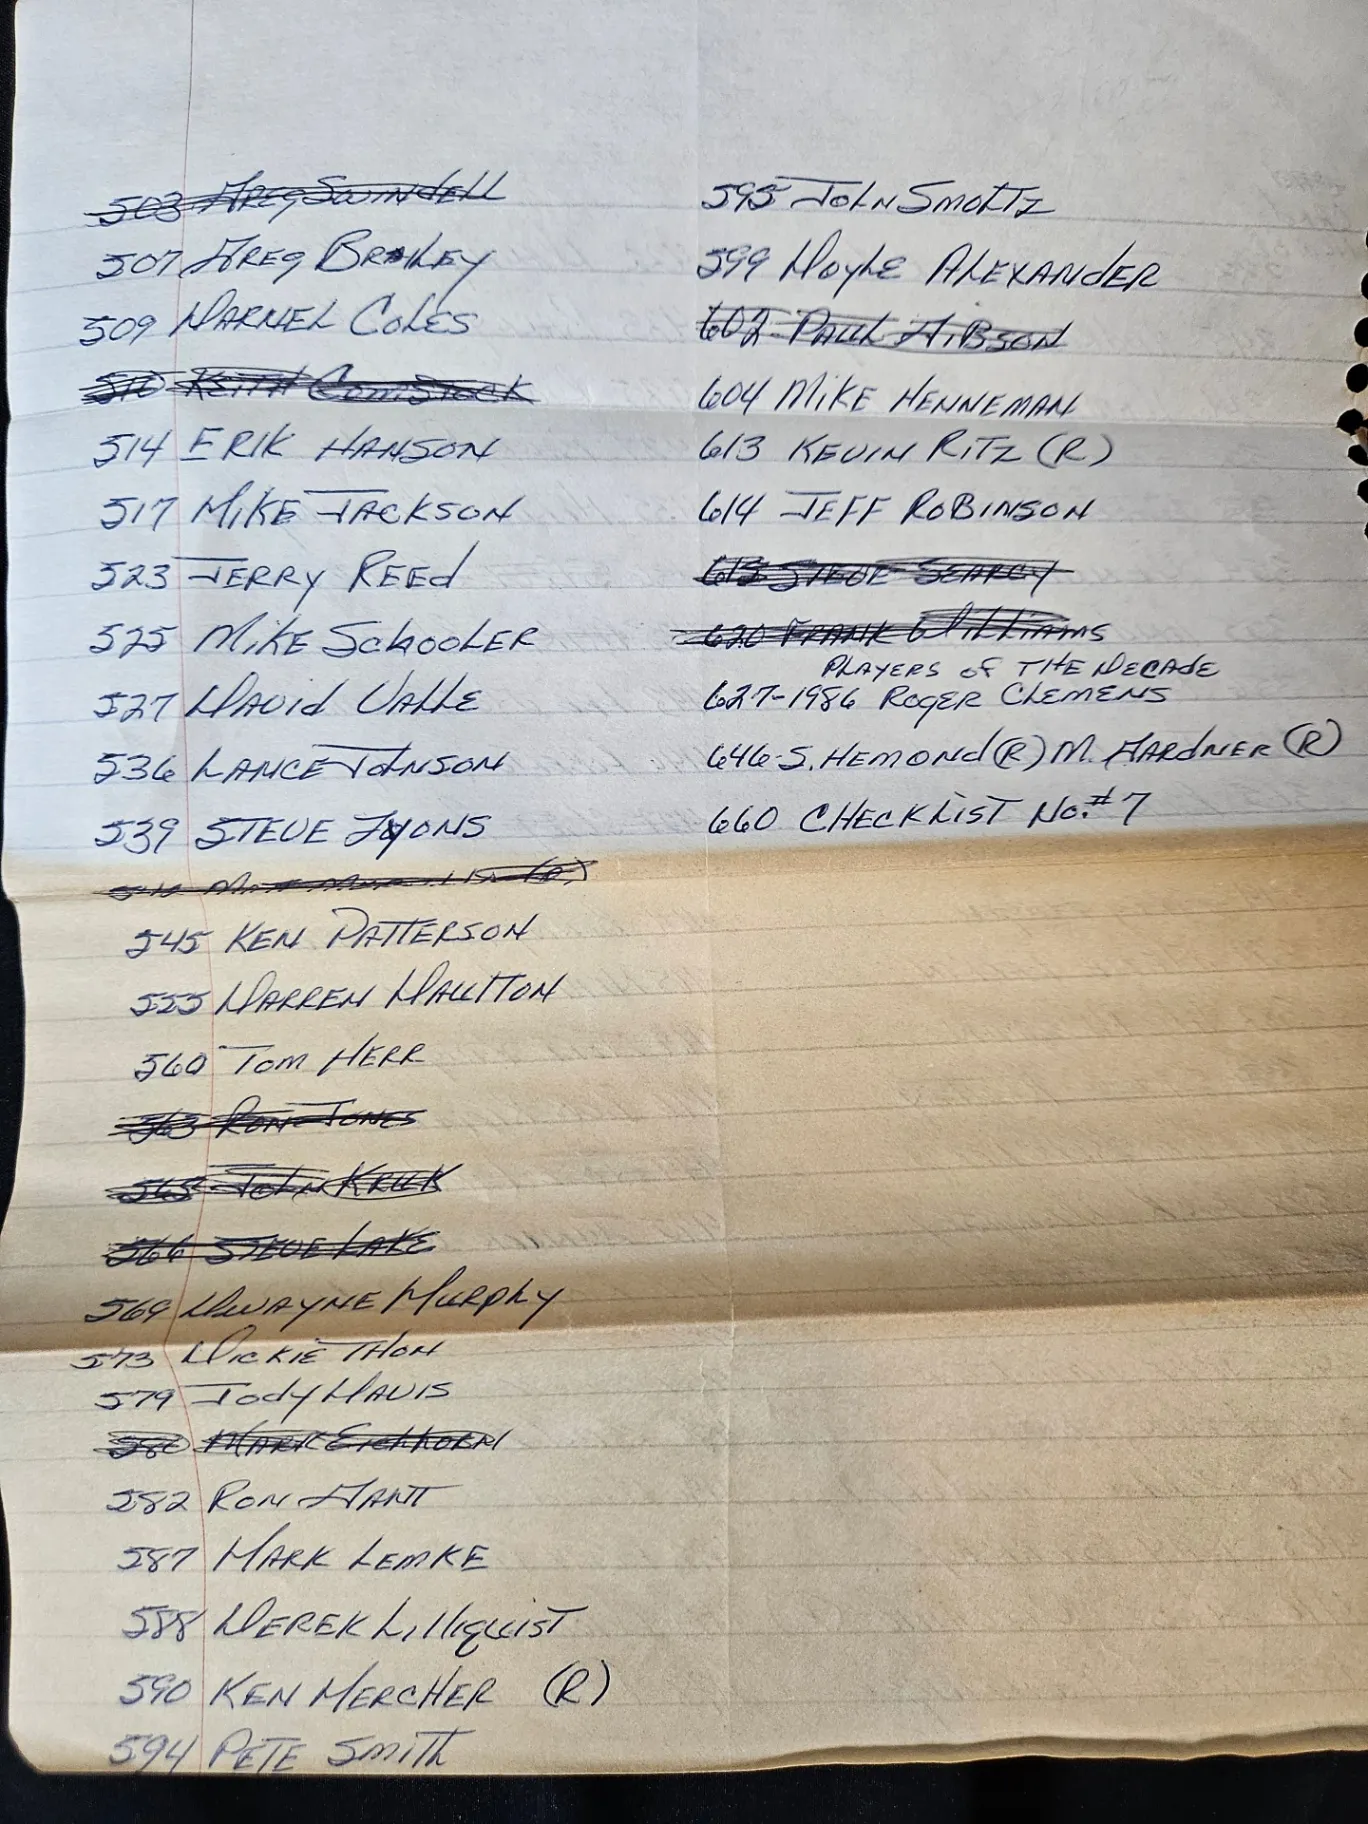 503 Greg Swindell
507 Greg Briley
509 Darnel Coles
510 Keith Comstock
514 Erik Hanson
517 Mike Jackson
523 Jerry Reed
525 Mike Schooler
527 David Valle
536 Lance Johnson
539 Steve Lyons
Matt
545 Ken Patterson
555 Darren Daulton
560 Tom Herr
563 Ron Jones
565 John Kruk
566 Steve Lake
569 Dwayne Murphy
573 Dickie Thon
579 Jody Davis
580 Mark Eichhorn
582 Ron Gant
587 Mark Lemke
588 Derek Lilliquist
590 Ken Mercher (R)
594 Pete Smith
595 John Smoltz
599 Doyle Alexander
602 Paul Gibson
604 Mike Henneman
613 Kevin Ritz (R)
614 Jeff Robinson
615 Steve Searcy
620 Frank Williams
Players of the Decade
627-1986 Roger Clemens
646-S. Hemond (R) M. Gardner (R)
660 Checklist No.#7